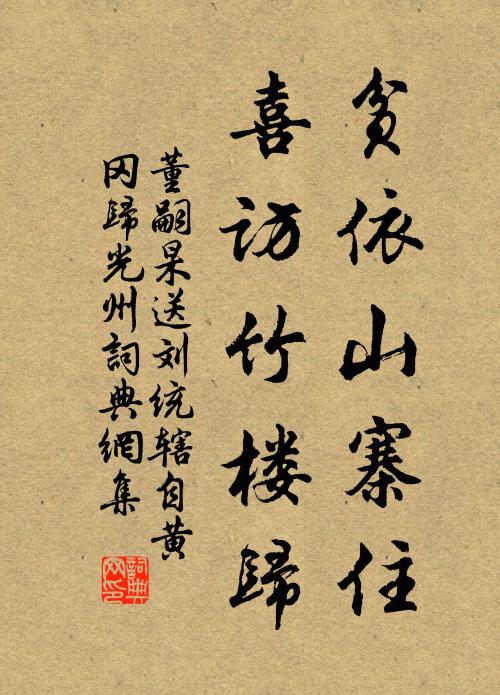 贫依山寨住
喜访竹楼歸
董嗣杲送刘统辖自黄
冈歸光州詞典網集
詞典网印